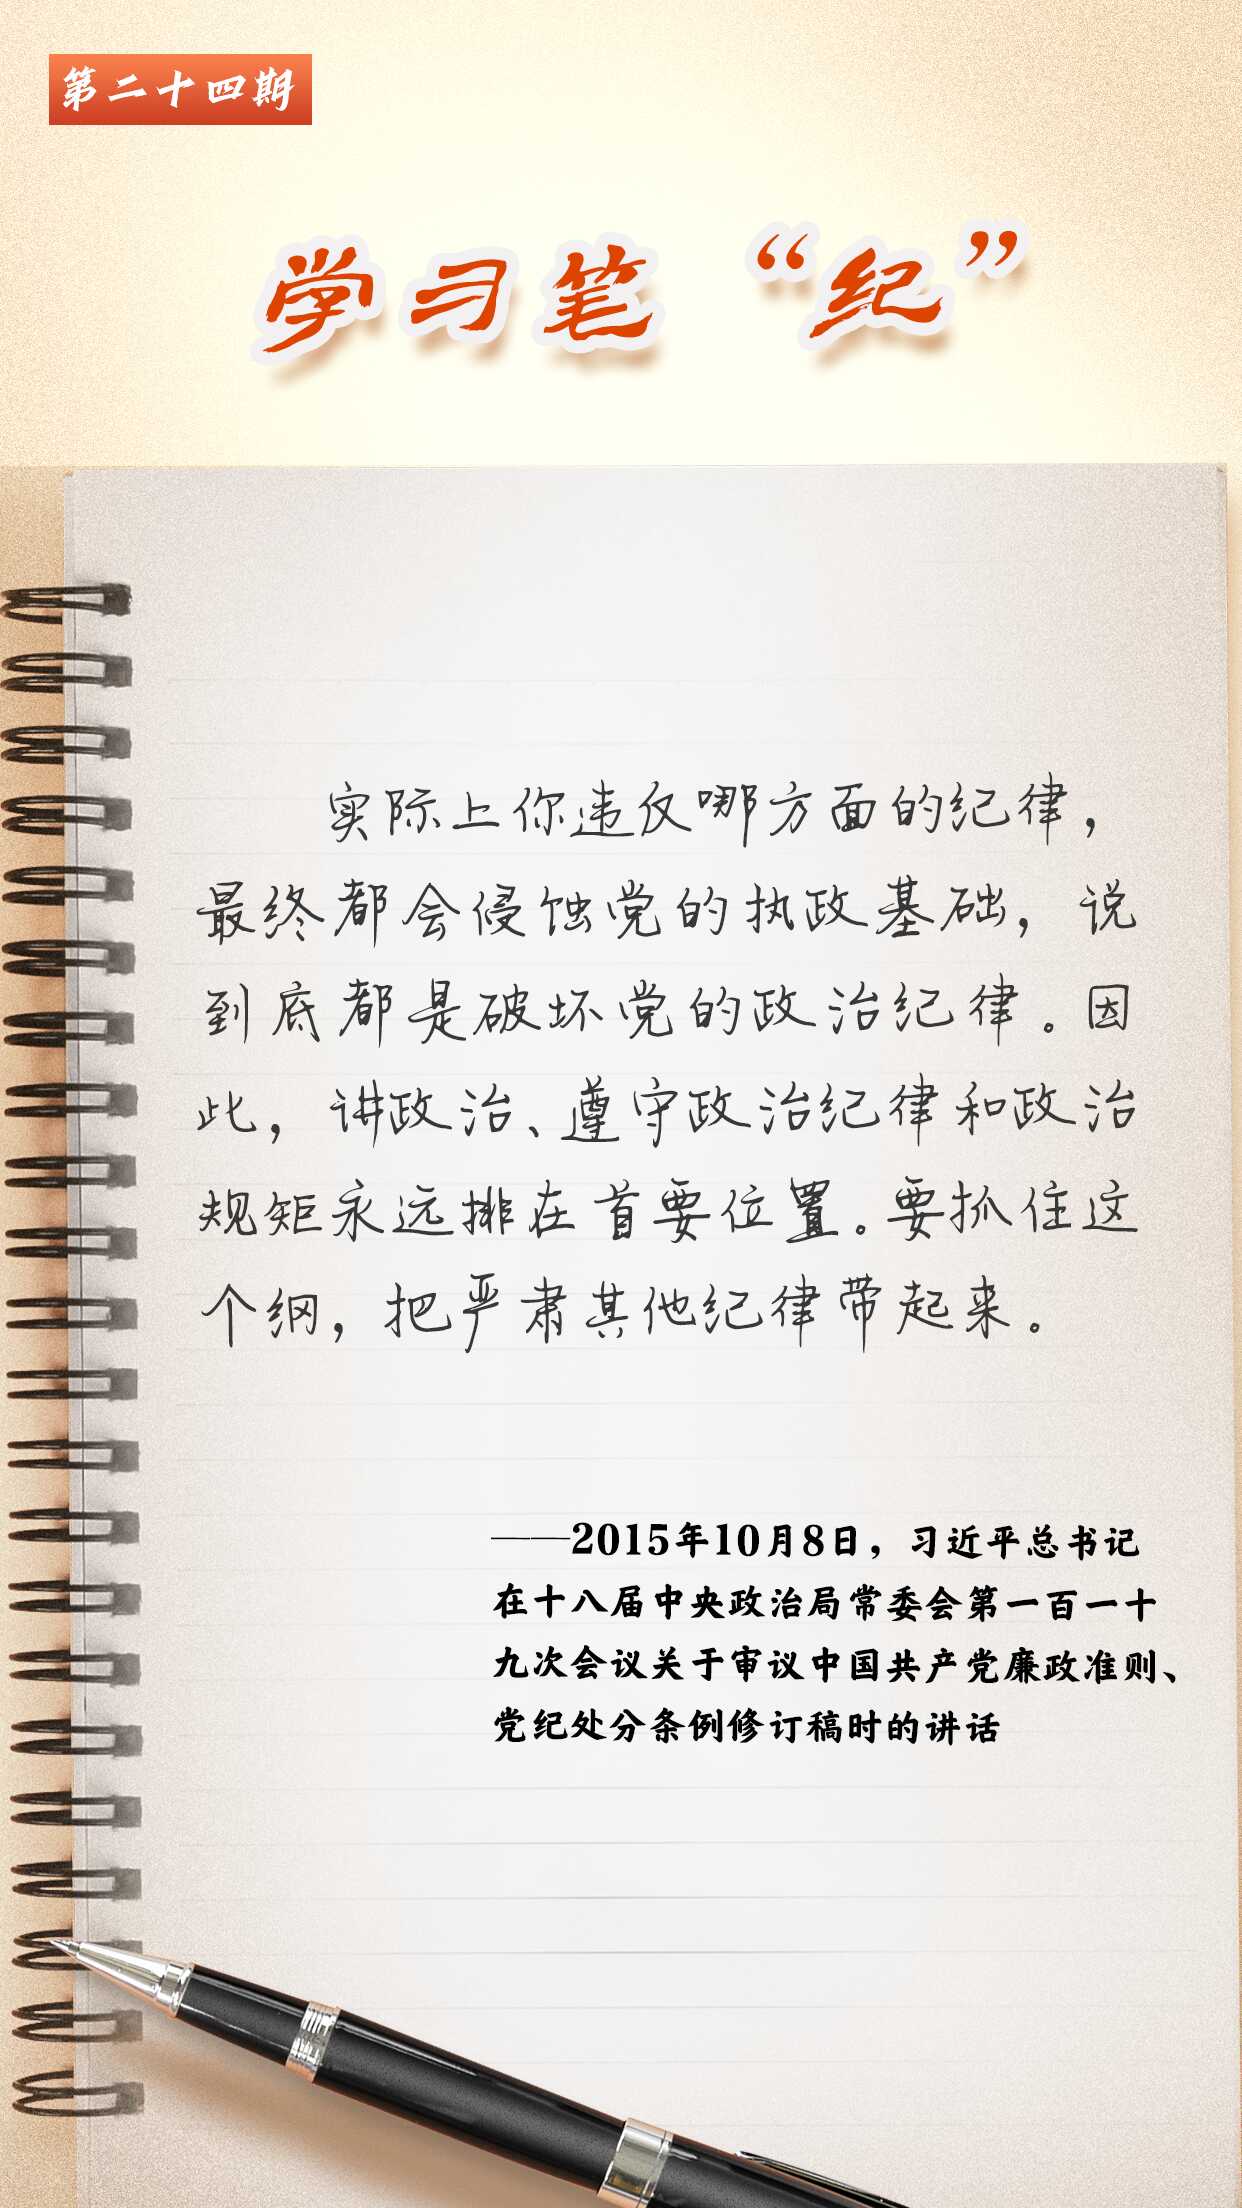 第二十四期
学习笔“纪”
实际上你违反哪方面的纪律，
最终都会侵蚀党的执政基础，说
到底都是破坏党的政治纪律。因
此，讲政治、遵守政治纪律和政治
规矩永远排在首要位置。要抓住这
个纲，把严肃其他纪律带起来。
——2015年10月8日，习近平总书记
在十八届中央政治局常委会第一百一十
九次会议关于审议中国共产党廉政准则、
党纪处分条例修订稿时的讲话